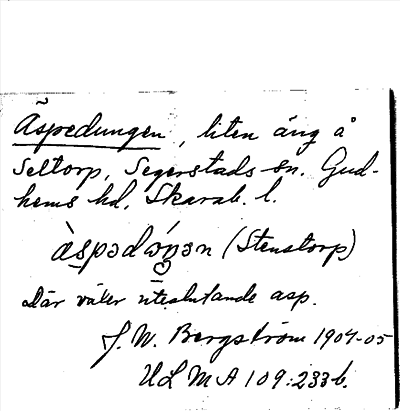 Äspedungen, liten äng å
Seltorp, Segerstads sn. Gud-
hems hd, Skarab. l.
(Stenstorp)
Där växer uteslutande asp.
J. W. Bergström 1904-05
ULMA 109:233b.